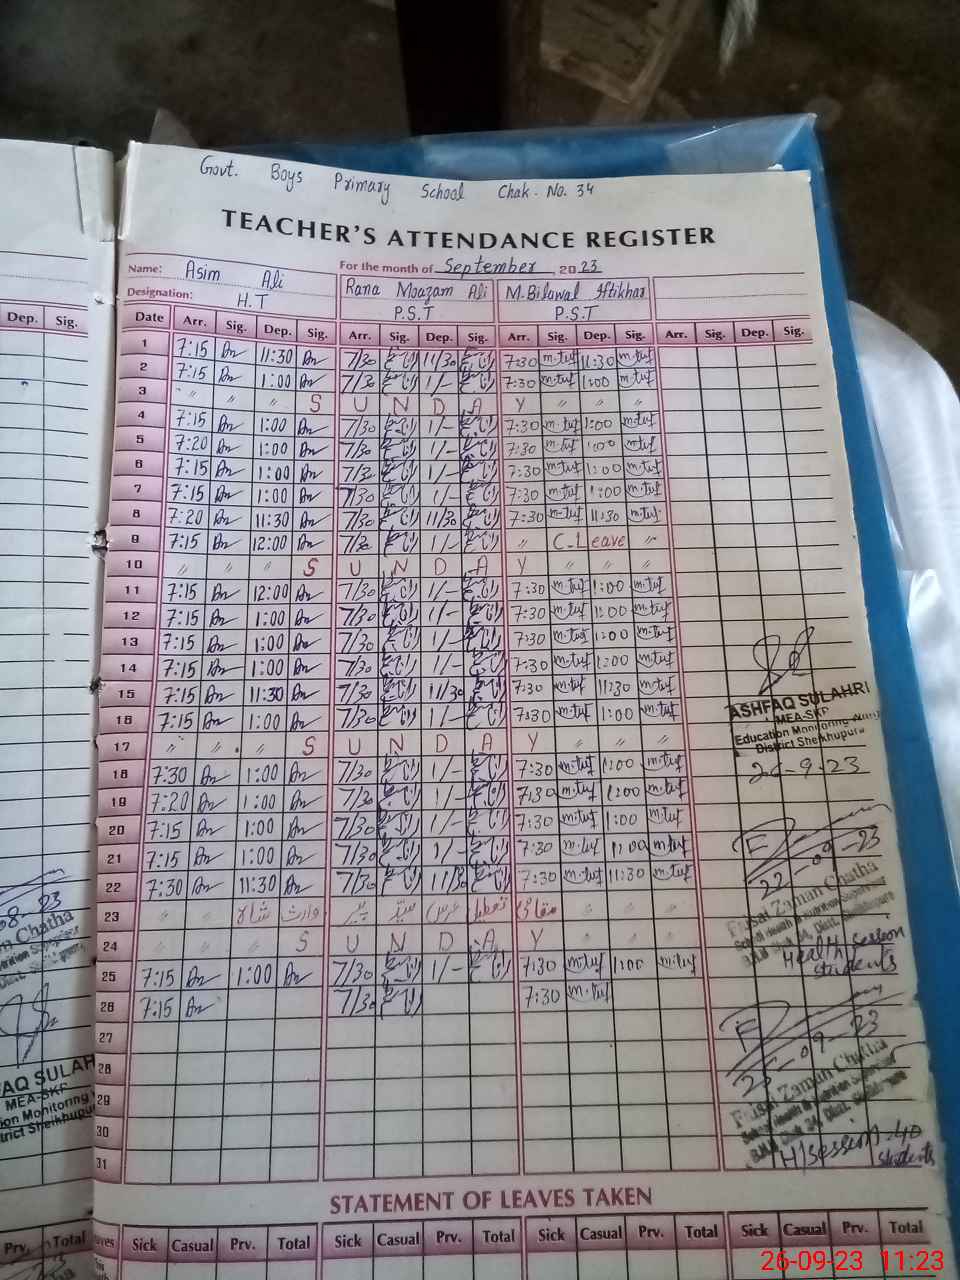 Govt. Boys Primary School Chak. No. 34
TEACHER'S ATTENDANCE REGISTER
Name: Asim Ali For the month of September, 2023
Designation: H.T Rana Moazam Ali P.S.T M. Bilawal Iftikhar P.S.T
Dep. Sig.
Date Arr. Sig. Dep. Sig. Arr. Sig. Dep. Sig. Arr. Sig. Dep. Sig. Arr. Sig. Dep. Sig.
1 7:15 11:30 7/30 11/30 7:30 m.tuf 11:30 m.tuf
2 7:15 1:00 7/30 1/- 7:30 m.tuf 1:00 m.tuf
3 " " " S U N D A Y " " "
4 7:15 1:00 7/30 1/- 7:30 m.tuf 1:00 m.tuf
5 7:20 1:00 7/30 1/- 7:30 m.tuf 1:00 m.tuf
6 7:15 1:00 7/30 1/- 7:30 m.tuf 1:00 m.tuf
7 7:15 1:00 7/30 1/- 7:30 m.tuf 1:00 m.tuf
8 7:20 11:30 7/30 11/30 7:30 m.tuf 11:30 m.tuf
9 7:15 12:00 7/30 1/- " C-Leave "
10 " " " S U N D A Y " " "
11 7:15 12:00 7/30 1/- 7:30 m.tuf 1:00 m.tuf
12 7:15 1:00 7/30 1/- 7:30 m.tuf 1:00 m.tuf
13 7:15 1:00 7/30 1/- 7:30 m.tuf 1:00 m.tuf
14 7:15 1:00 7/30 1/- 7:30 m.tuf 1:00 m.tuf
15 7:15 11:30 7/30 11/30 7:30 m.tuf 11:30 m.tuf
16 7:15 1:00 7/30 1/- 7:30 m.tuf 1:00 m.tuf
17 " " " S U N D A Y " " "
18 7:30 1:00 7/30 1/- 7:30 m.tuf 1:00 m.tuf
19 7:20 1:00 7/30 1/- 7:30 m.tuf 1:00 m.tuf
20 7:15 1:00 7/30 1/- 7:30 m.tuf 1:00 m.tuf
21 7:15 1:00 7/30 1/- 7:30 m.tuf 1:00 m.tuf
22 7:30 11:30 7/30 11/30 7:30 m.tuf 11:30 m.tuf
23 " " مقامی تعطیل عرس سید پیر وارث شاہ
24 " " " S U N D A Y " " "
25 7:15 1:00 7/30 1/- 7:30 m.tuf 1:00 m.tuf
26 7:15 7/30 7:30 m.tuf
27
28
29
30
31
ASHFAQ SULAHRI
MEA-SKP
Education Monitoring
District Sheikhupura
26-9-23
22-09-23
Faisal Zaman Chatha
School Health & Nutrition Supervisor
Health session
students
25-09-23
Faisal Zaman Chatha
School Health & Nutrition Supervisor
H/session 40
students
08-23
Chatha
AQ SULAH
MEA-SKP
ion Monitoring
trict Sheikhupu
STATEMENT OF LEAVES TAKEN
Prv. Total
Sick Casual Prv. Total Sick Casual Prv. Total Sick Casual Prv. Total Sick Casual Prv. Total
26-09-23 11:23